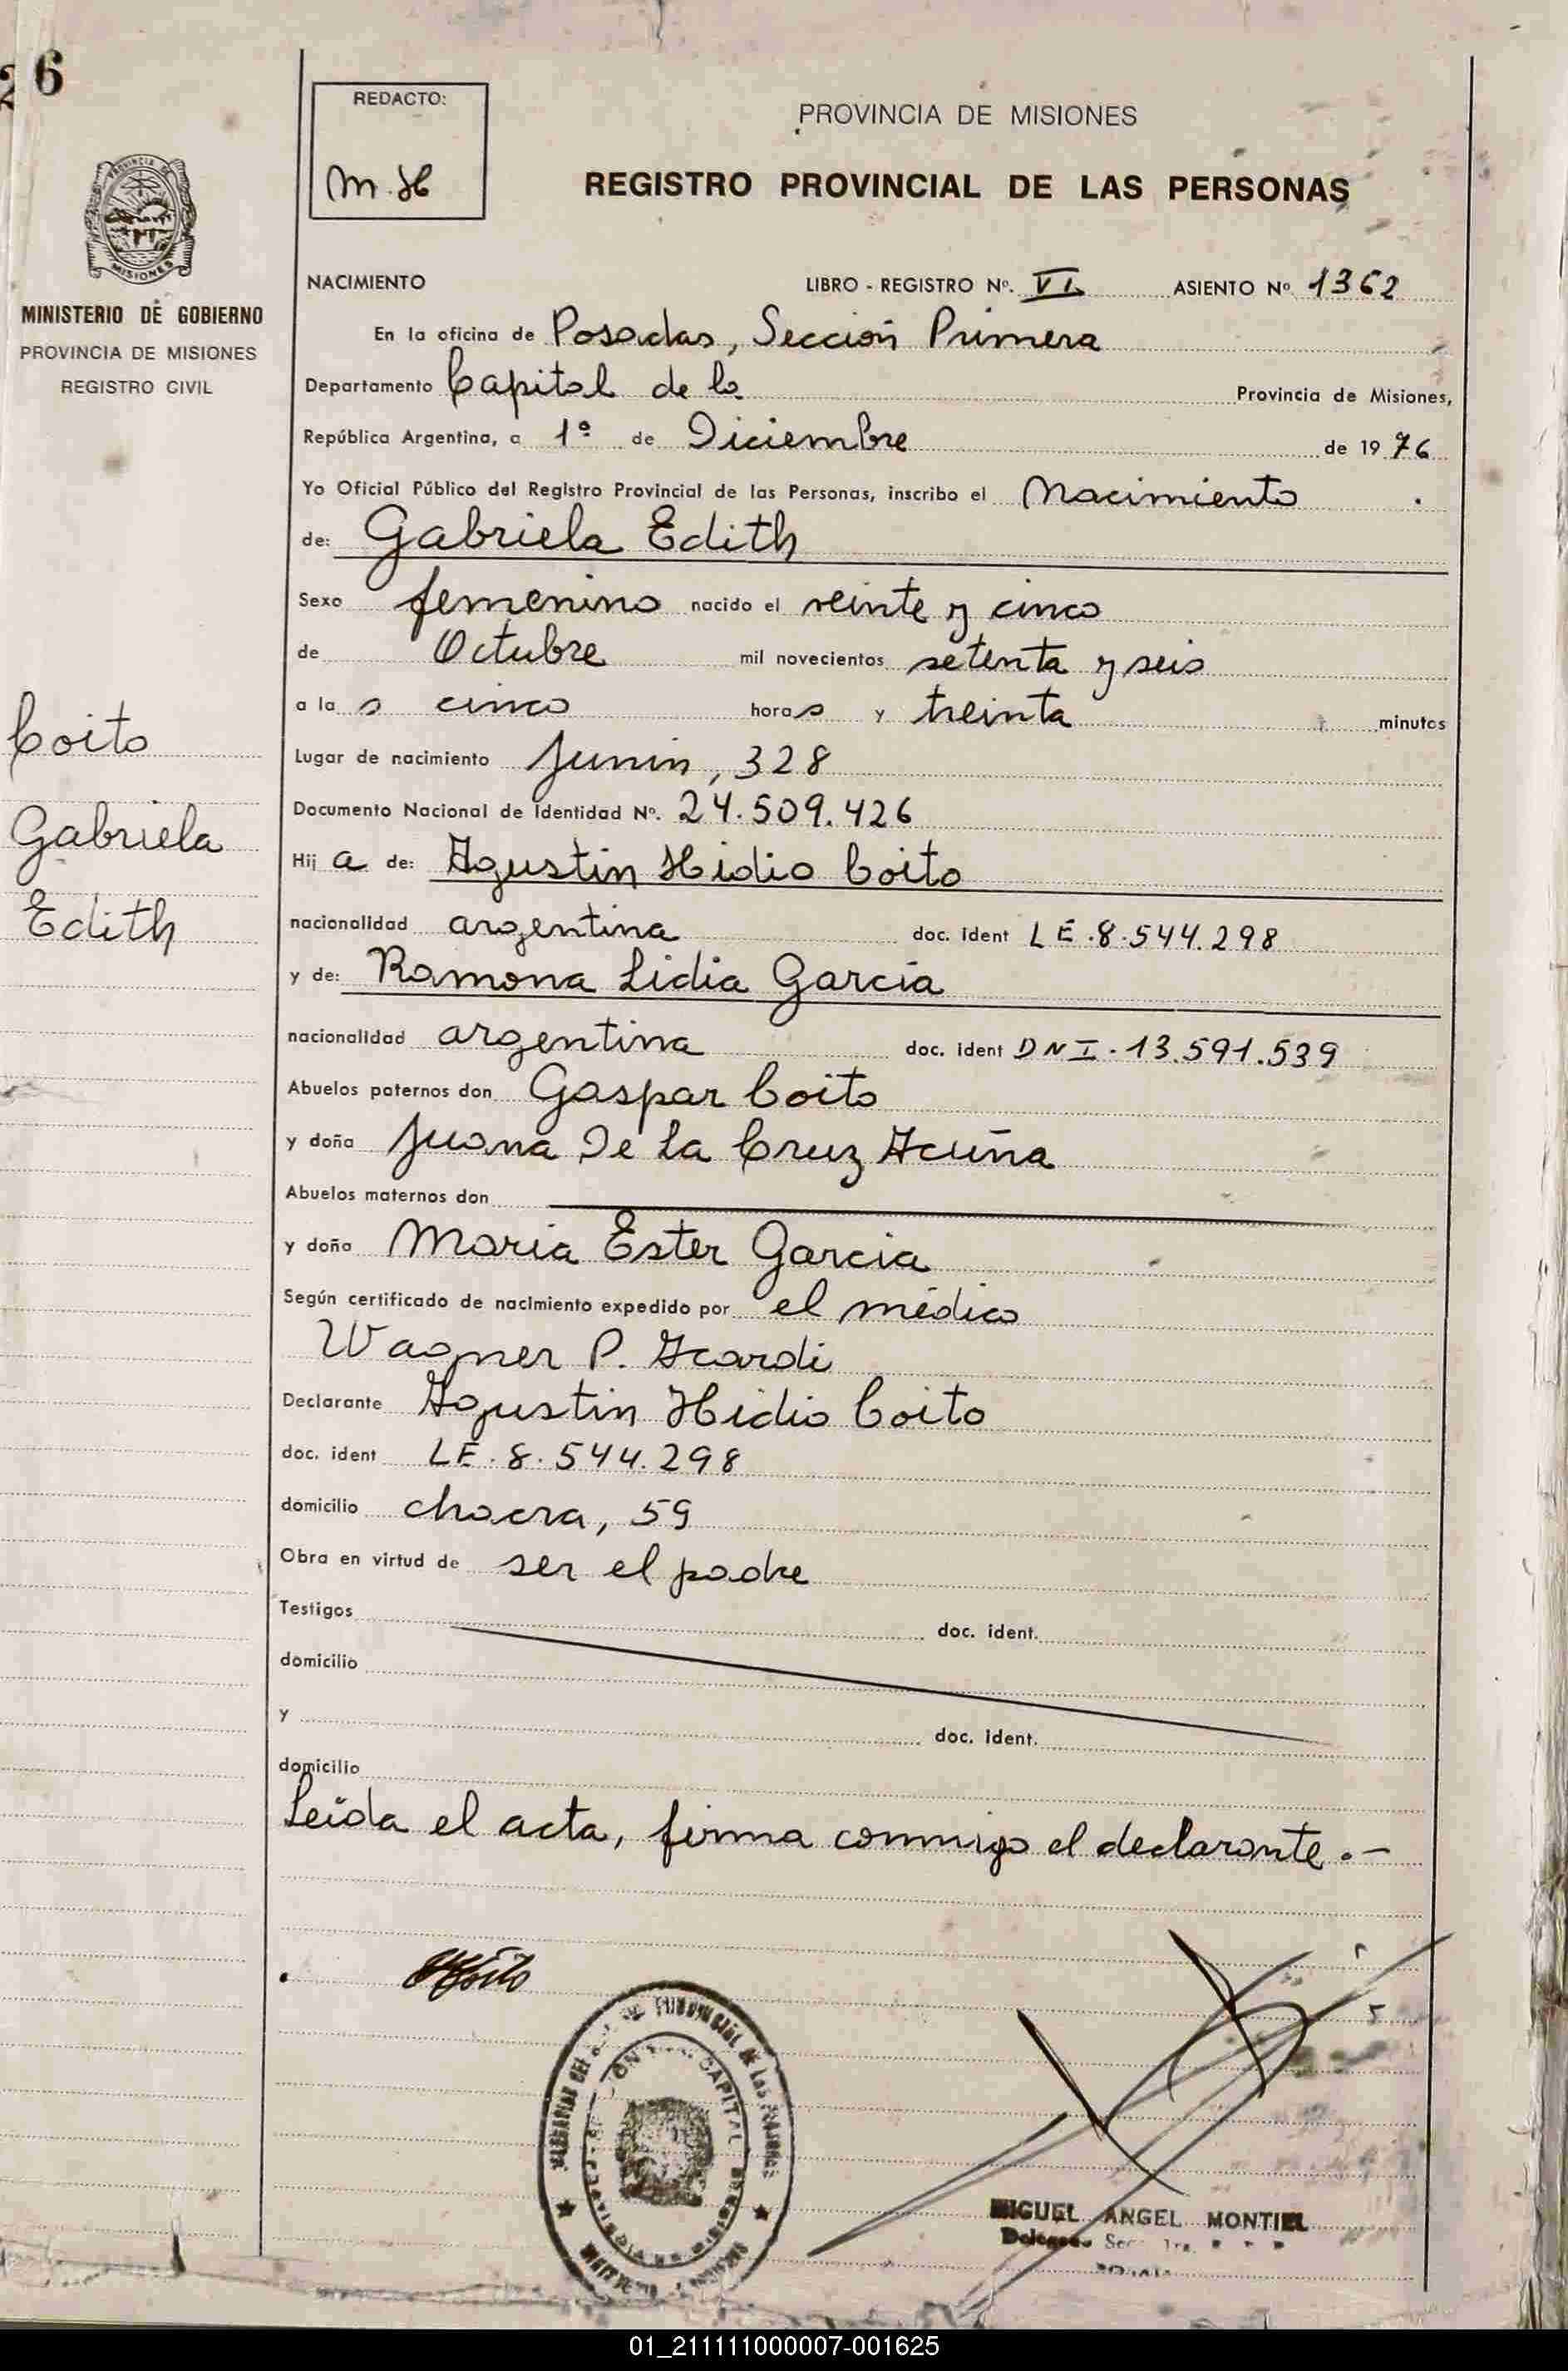 26
REDACTO:
M.H
PROVINCIA DE MISIONES
REGISTRO PROVINCIAL DE LAS PERSONAS
PROVINCIA DE
MISIONES
MINISTERIO DE GOBIERNO
PROVINCIA DE MISIONES
REGISTRO CIVIL
NACIMIENTO LIBRO - REGISTRO Nº. VI ASIENTO Nº 1362
En la oficina de Posadas, Sección Primera
Departamento Capital de la Provincia de Misiones,
República Argentina, a 1º de Diciembre de 1976
Yo Oficial Público del Registro Provincial de las Personas, inscribo el Nacimiento
de: Gabriela Edith
Sexo femenino nacido el veinte y cinco
de Octubre mil novecientos setenta y seis
a la s cinco horas y treinta minutos
Lugar de nacimiento Junín, 328
Documento Nacional de Identidad Nº. 24.509.426
Hij a de: Agustin Hidio Coito
nacionalidad argentina doc. ident LE.8.544.298
y de: Ramona Lidia García
nacionalidad argentina doc. ident DNI.13.591.539
Abuelos paternos don Gaspar Coito
y doña Juana De La Cruz Acuña
Abuelos maternos don
y doña Maria Ester Garcia
Según certificado de nacimiento expedido por el médico
Wagner P. Acardi
Declarante Agustin Hidio Coito
doc. ident LE.8.544.298
domicilio chacra, 59
Obra en virtud de ser el padre
Testigos doc. ident.
domicilio
y doc. ident.
domicilio
Leída el acta, firma conmigo el declarante.-
Coito
Gabriela
Edith
Coito
CAPITAL
MIGUEL ANGEL MONTIEL
01_211111000007-001625